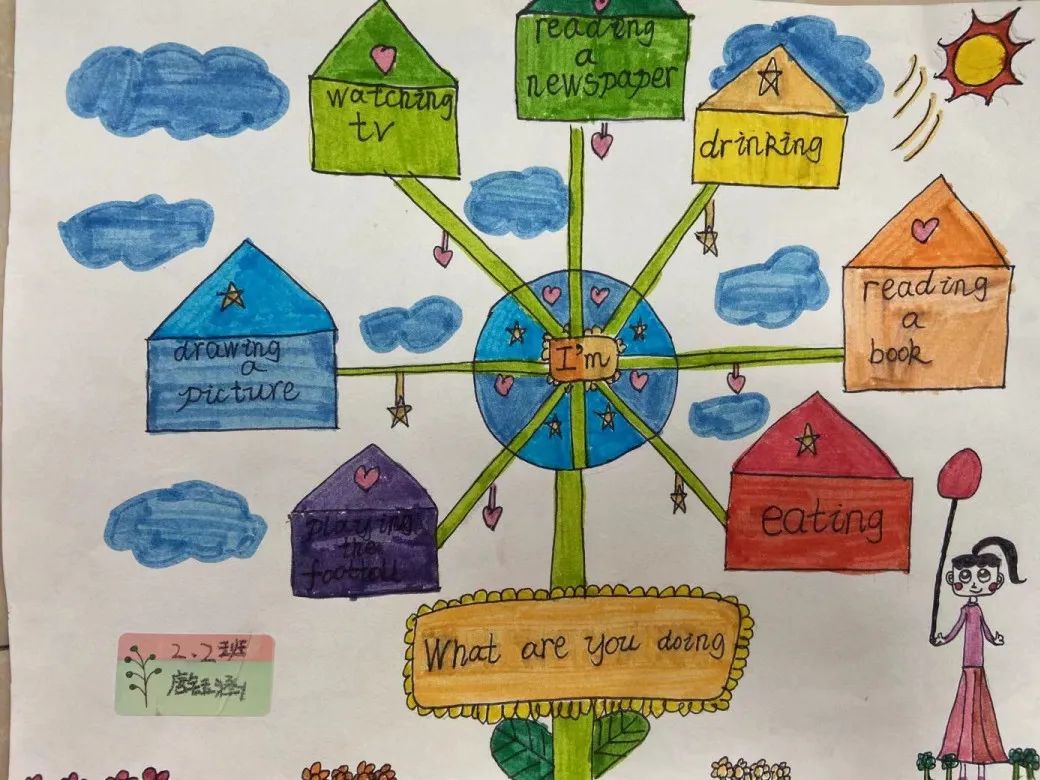 reading
a
newspaper
watching
tv
drinking
reading
a
book
drawing
a
picture
I'm
eating
playing
the
What are you doing
2.2班